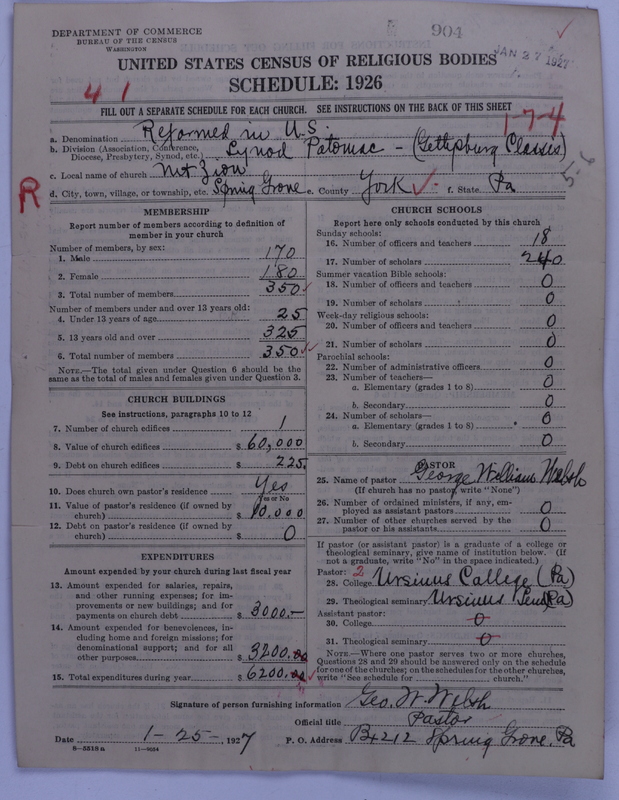 DEPARTMENT OF COMMERCE
BUREAU OF THE CENSUS
WASHINGTON
904
JAN 27 1927
UNITED STATES CENSUS OF RELIGIOUS BODIES
SCHEDULE: 1926
41
FILL OUT A SEPARATE SCHEDULE FOR EACH CHURCH. SEE INSTRUCTIONS ON THE BACK OF THIS SHEET
1-7-4
a. Denomination Reformed in U.S.
b. Division (Association, Conference, Diocese, Presbytery, Synod, etc.) Synod Potomac - (Gettysburg Classis)
c. Local name of church Mt Zion
5-6
R
d. City, town, village, or township, etc. Spring Grove e. County York f. State Pa
MEMBERSHIP
Report number of members according to definition of
member in your church
Number of members, by sex:
1. Male 170
2. Female 180
3. Total number of members 350
Number of members under and over 13 years old:
4. Under 13 years of age 25
5. 13 years old and over 325
6. Total number of members 350
NOTE.—The total given under Question 6 should be
same as the total of males and females given under Question 3.
CHURCH BUILDINGS
See instructions, paragraphs 10 to 12
7. Number of church edifices 1
8. Value of church edifices $ 60,000
9. Debt on church edifices $ 225.
10. Does church own pastor's residence Yes
Yes or No
11. Value of pastor's residence (if owned by
church) $ 10,000
12. Debt on pastor's residence (if owned by
church) $ 0
EXPENDITURES
Amount expended by your church during last fiscal year
13. Amount expended for salaries, repairs,
and other running expenses; for im-
provements or new buildings; and for
payments on church debt $ 3000.—
14. Amount expended for benevolences, in-
cluding home and foreign missions; for
denominational support; and for all
other purposes $ 3200.00
15. Total expenditures during year $ 6200.00
CHURCH SCHOOLS
Report here only schools conducted by this church
Sunday schools:
16. Number of officers and teachers 18
17. Number of scholars 240
Summer vacation Bible schools:
18. Number of officers and teachers 0
19. Number of scholars 0
Week-day religious schools:
20. Number of officers and teachers 0
21. Number of scholars 0
Parochial schools:
22. Number of administrative officers 0
23. Number of teachers—
a. Elementary (grades 1 to 8) 0
b. Secondary 0
24. Number of scholars—
a. Elementary (grades 1 to 8) 0
b. Secondary 0
PASTOR
25. Name of pastor George William Welsh
(If church has no pastor, write "None")
26. Number of ordained ministers, if any, em-
ployed as assistant pastors 0
27. Number of other churches served by the
pastor or his assistants 0
If pastor (or assistant pastor) is a graduate of a college or
theological seminary, give name of institution below. (If
not a graduate, write "No" in the space indicated.)
Pastor: 2
28. College Ursinus College (Pa)
29. Theological seminary Ursinus Sem (Pa)
Assistant pastor:
30. College 0
31. Theological seminary 0
NOTE.—Where one pastor serves two or more churches,
Questions 28 and 29 should be answered only on the schedule
for one of the churches; on the schedules for the other churches,
write "See schedule for church."
Signature of person furnishing information Geo. W. Welsh
Official title Pastor
Date 1-25-, 1927 P. O. Address Bx 212 Spring Grove, Pa
8—5518a 11—9054